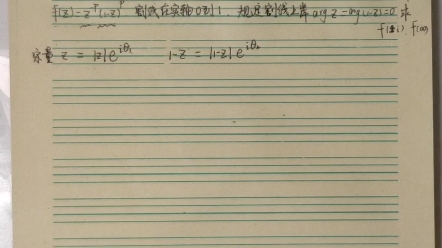 f(z)=z^{-p}(1-z)^{p} 割线在实轴0到1. 规定割线上岸 arg z = arg(1-z)=0 求
f(±i) f(∞)
z = |z|e^{iθ₁} 1-z = |1-z|e^{iθ₂}